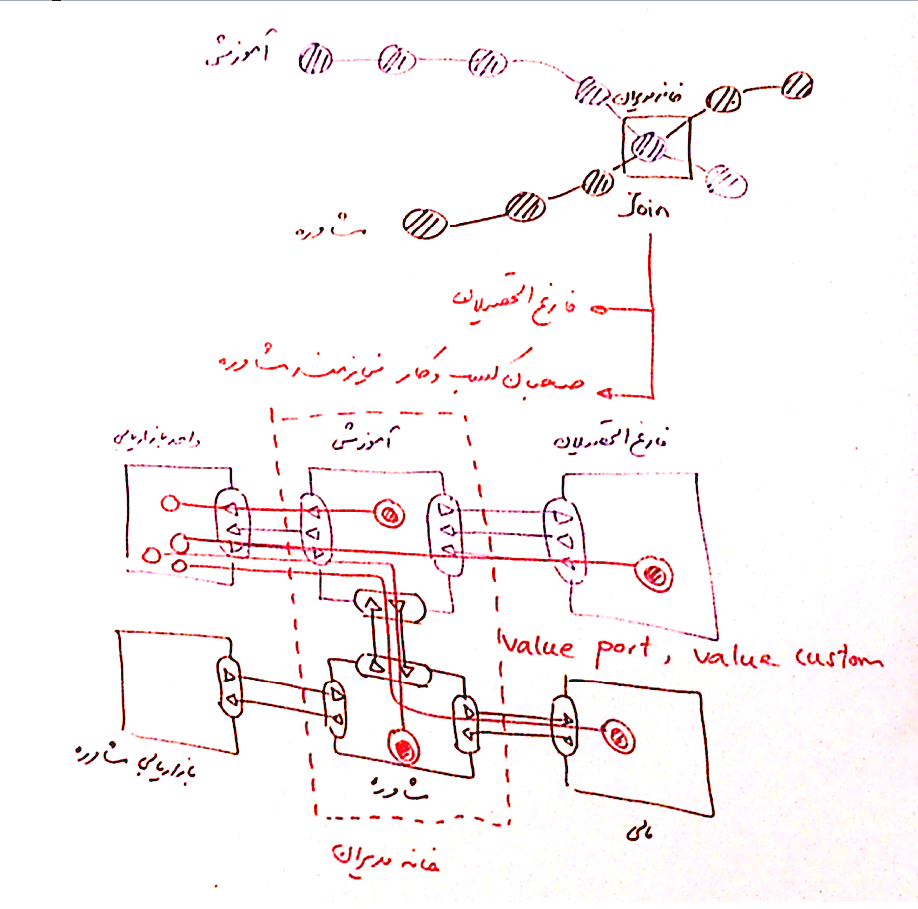 آموزشی
خانه مدیران
Join
مشاوره
فارغ التحصیلان
صاحبان کسب و کار نیازمند مشاوره
واحد بازاریابی
آموزشی
فارغ التحصیلان
value port, value custom
بازاریابی مشاوره
مشاوره
مالی
خانه مدیران